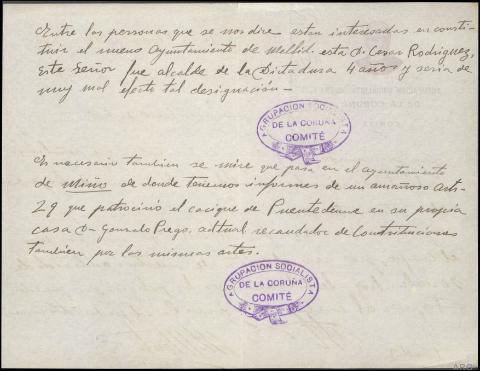 Entre las personas que se nos dice estan interesadas en consti-
tuir el nuevo Ayuntamiento de Mellid. esta D. Cesar Rodriguez,
este Señor fue alcalde de la Dictadura 4 años y seria de
muy mal efecto tal designación —
AGRUPACION SOCIALISTA
DE LA CORUÑA
COMITÉ
Es necesario tambien se mire que pasa en el ayuntamiento
de Miño de donde tenemos informes de un amañoso Arti-
29 que patrocinó el cacique de Puentedeume en su propia
casa D- Gonzalo Prego, actual recaudador de Contribuciones
tambien por las mismas artes.
AGRUPACION SOCIALISTA
DE LA CORUÑA
COMITÉ